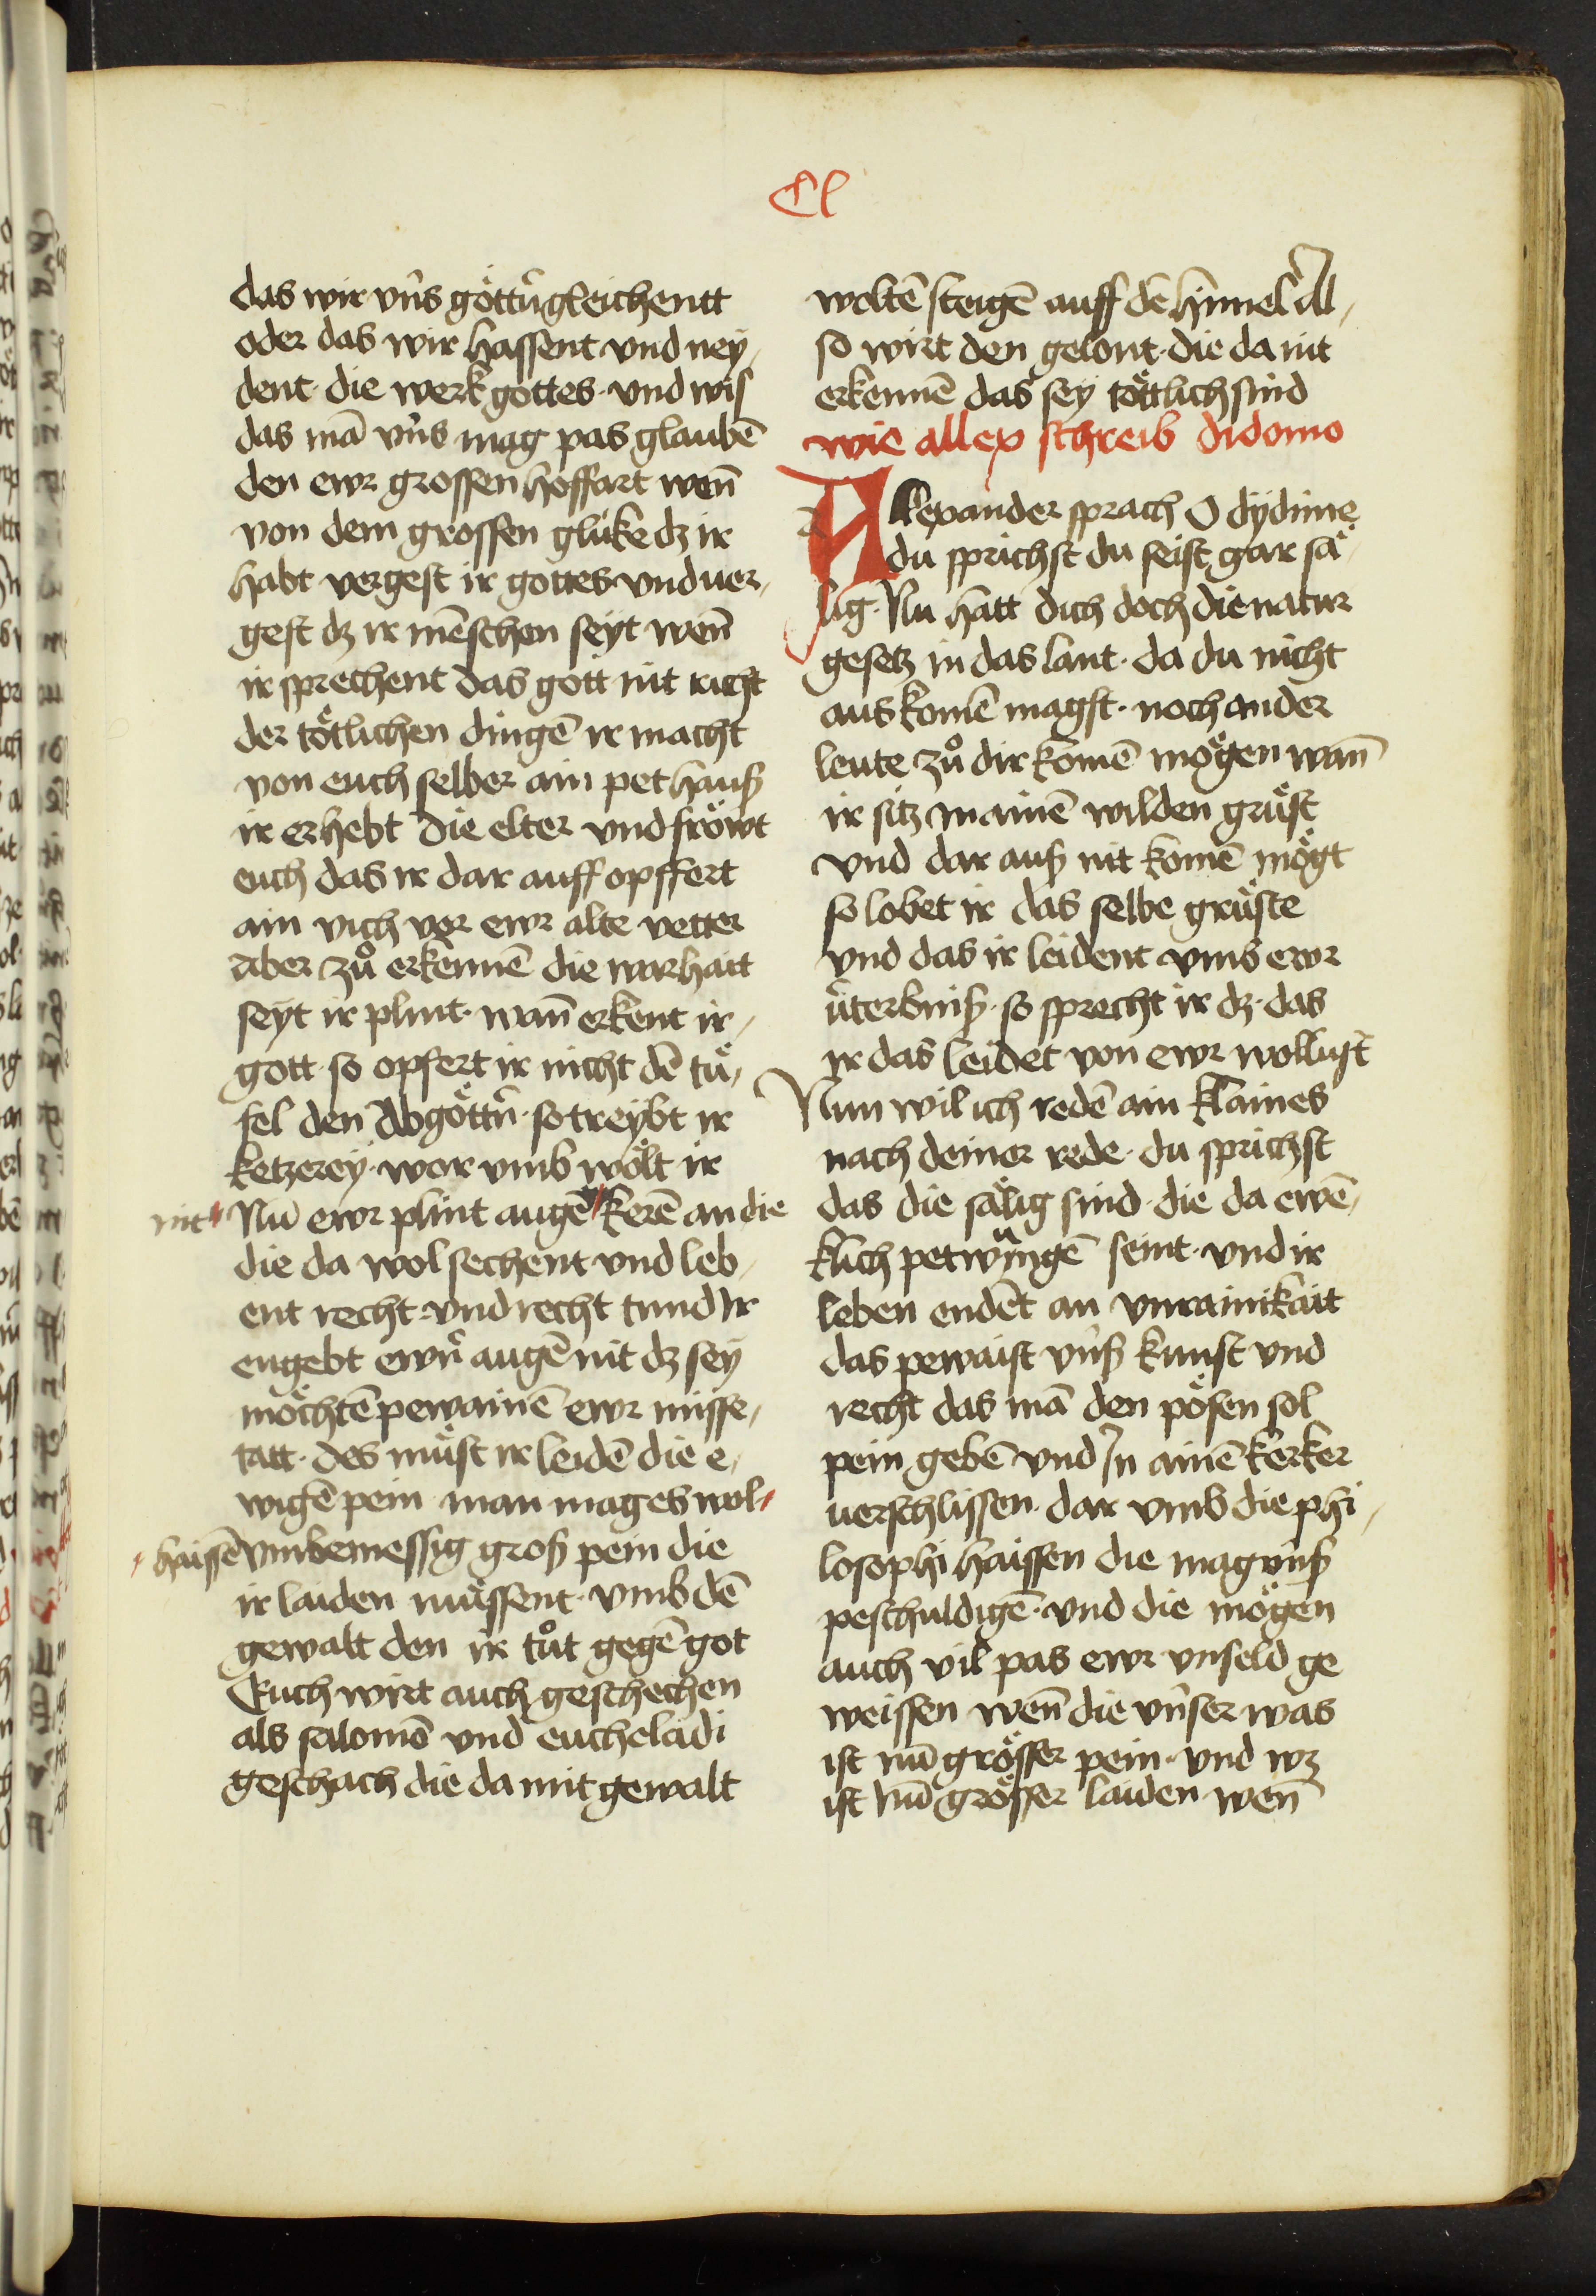 Cl
das wir vn̄s göttn̄ gleichentt
oder das wir hassent vnd ney,
dent · die werk gottes · vnd wis
das mā vn̄s mag pas glaubē
den ewr grossen hoffart wen̄
von dem grossen gluͤke dz ir
habt vergest ir gottes vnd uer,
gest dz ir mēschen seyt wen̄
ir sprechent das gott nit richt
der toͤtlichen dingē ir macht
von euch selber ain pethauß
ir erhebt die elter vnd froͤwt
euch das ir dar auff opffert
ain vich vor ewr alte vetter
aber zuͦ erkennē die warhait
seyt ir plint · wan̄ erkent ir,
gott · so opfert ir nicht dē tuͤ,
fel den Abgöttn̄ · so treybt ir
ketzerey · wor vmb woͤlt ir
nit Nū ewr plint augē kerē an die
die da wol sechent vnd leb,
ent recht · vnd recht tund Ir
engebt ewrn̄ augē nit dz sey
moͤchtē pewainē ewr misse,
tatt · des muͤst ir leidē die e,
wigē pein man mag es wol
haissē vmbemessig groß pein die
ir laiden muͤssent · vmb dē
gewalt den ir tuͦt gegē got
Euch wirt auch geschechen
als salomō vnd eucheladi
geschach die da mit gewalt
woltē steigē auff dē himel Al,
so wirt den gelont · die da nit
erkennē das sey toͤttlich sind
wie allex schreib didomo
Allexander sprach O dydime
du sprichst du seist gar saͤ,
lig · Nu hatt dich doch die natur
gesetz in das lant · da du nicht
aus komē magst · noch ander
leute zuͦ dir komē moͤgen wan̄
ir sitz in ainē wilden gruͤst
vnd dar auß nit komē moͤgt
so lobet ir das selbe gruͤste
vnd das ir leident vmb ewr
uͤterbniß · so sprecht ir dz · das
ir das leidet von ewr wollust
Nun wil ich redē ain klaines
nach deiner rede · du sprichst
das die saͤlig sind · die da ewē,
klich petwungē seint · vnd ir
leben endēt an vnrainikait
das pewaist vn̄ß kunst vnd
recht das mā den poͤsen sol
pein gebē vnd In ainē kerker
uerschlissen · dar vmb die phi,
losophi haissen die mag vn̄ß
peschuldigē · vnd die moͤgen
auch vil pas ewr vnseld ge
weissen wen̄ die vn̄ser was
ist nū groͤsser pein · vnd wz
ist nū groͤsser laiden wen̄